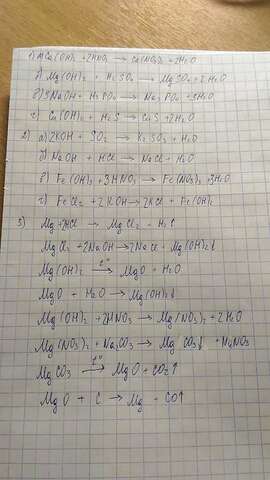 1) а) Ca(OH)₂ + 2HNO₃ → Ca(NO₃)₂ + 2H₂O
б) Mg(OH)₂ + H₂SO₄ → MgSO₄ + 2H₂O
в) 3NaOH + H₃PO₄ → Na₃PO₄ + 3H₂O
г) Ca(OH)₂ + H₂S → CaS + 2H₂O
2) а) 2KOH + SO₂ → K₂SO₃ + H₂O
б) NaOH + HCl → NaCl + H₂O
в) Fe(OH)₃ + 3HNO₃ → Fe(NO₃)₃ + 3H₂O
г) FeCl₂ + 2KOH → 2KCl + Fe(OH)₂
3) Mg + 2HCl → MgCl₂ + H₂↑
MgCl₂ + 2NaOH → 2NaCl + Mg(OH)₂↓
Mg(OH)₂ t° → MgO + H₂O
MgO + H₂O → Mg(OH)₂↓
Mg(OH)₂ + 2HNO₃ → Mg(NO₃)₂ + 2H₂O
Mg(NO₃)₂ + Na₂CO₃ → MgCO₃↓ + NaNO₃
MgCO₃ t° → MgO + CO₂↑
MgO + C → Mg + CO↑